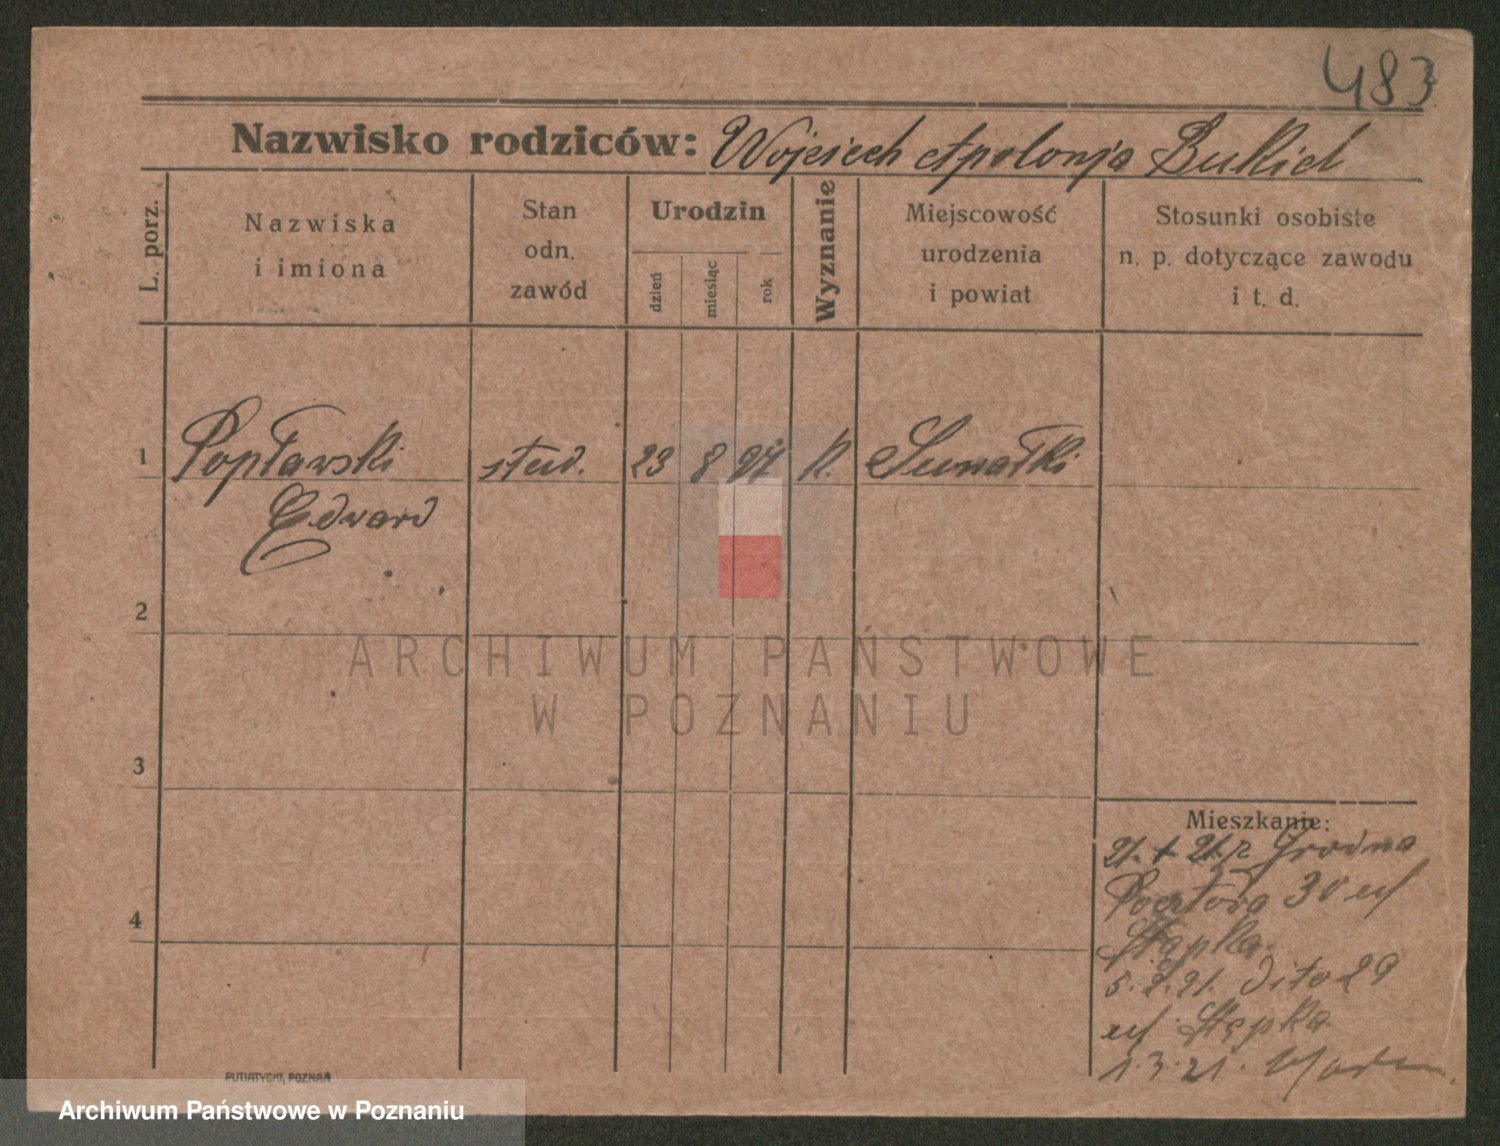 483
Nazwisko rodziców: Wojciech Apolonja Bukiel
L. porz.
Nazwiska
i imiona
Stan
odn.
zawód
Urodzin
dzień
miesiąc
rok
Wyznanie
Miejscowość
urodzenia
i powiat
Stosunki osobiste
n. p. dotyczące zawodu
i t. d.
1 Popławski stud. 23 8 97 K. Suwałki
Edward
2
ARCHIWUM PAŃSTWOWE
W POZNANIU
3
Mieszkanie:
Grodna
Pocztowa 30 u/
Stępka.
4
5.2.21. dito 29
u/ Stępka.
1.3.21.
PUTIATYCKI, POZNAŃ
Archiwum Państwowe w Poznaniu